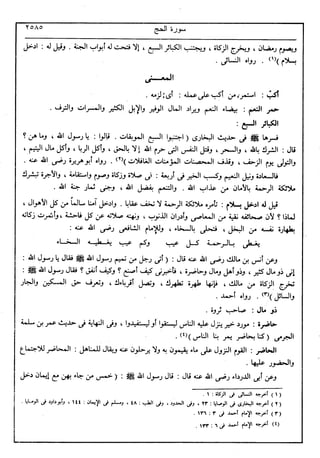 سورة الحج ٢٥٨٥
ويصوم رمضان ، ويخرج الزكاة ، ويجتنب الكبائر السبع ، إلا فتحت له أبواب الجنة . وقيل له : ادخل
بسلام )(١) . رواه النسائى .
المعـــنى
أكبّ : استمر من أكب على عمله : أى لزمه .
حمر النعم : بيضاء النعم ويراد المال الوفير والإبل الكثير والمسرات والترف .
الكبائر السبع :
فسرها ﷺ فى حديث البخارى ( اجتنبوا السبع الموبقات . قالوا : يا رسول الله ، وما هن ؟
قال : الشرك بالله ، والسحر ، وقتل النفس التى حرم الله إلا بالحق ، وأكل الربا ، وأكل مال اليتيم ،
والتولى يوم الزحف ، وقذف المحصنات المؤمنات الغافلات )(٢) . رواه أبو هريرة رضى الله عنه .
فالسعادة ونيل النعيم وكسب الخير فى أربعة : فى صلاة وزكاة وصوم واستقامة ، والأجرة تبشرك
ملائكة الرحمة بالأمان من عذاب الله . والتنعم بفضل الله ، وجنى ثمار جنة الله .
قيل له ادخل بسلام : تأمره ملائكة الرحمة لا تخف عقابا . وادخل آمنا سالما من كل الأهوال ،
لماذا ؟ لأن صحائفه نقية من المعاصى وأدران الذنوب ، ونهته صلاته عن كل فاحشة ، وأثمرت زكاته
بطهارة نفسه من البخل ، فتحلى بالسخاء ، وللإمام الشافعى رضى الله عنه :
يغطى بـالـرحمـة كـل عيب وكم عيب يغطـيـه السخـاء
وعن أنس بن مالك رضى الله عنه قال : ( أتى رجل من تميم رسول الله ﷺ فقال يا رسول الله :
إنى ذو مال كثير ، وذو أهل ومال وحاضرة ، فأخبرنى كيف أصنع ؟ وكيف أنفق ؟ فقال رسول الله ﷺ :
تخرج الزكاة من مالك ، فإنها طهرة تطهرك ، وتصل أقرباءك ، وتعرف حق المسكين والجار
والسائل )(٣) . رواه أحمد .
ذو مال : صاحب ثروة .
حاضرة : مورد خير ينزل عليه الناس ليستقوا أو ليستفيدوا ، وفى النهاية فى حديث عمر بن سلمة
الجرمى ( كنا بحاضر يمر بنا الناس )(٤) .
الحاضر : القوم النزول على ماء يقيمون به ولا يرحلون عنه ويقال للمناهل : المحاضر للاجتماع
والحضور عليها .
وعن أبى الدرداء رضى الله عنه قال : قال رسول الله ﷺ : ( خمس من جاء بهن مع إيمان دخل
(١) أخرجه النسائى فى الزكاة : ١ .
(٢) أخرجه البخارى فى الوصايا : ٢٣ ، وفى الحدود ، وفى الطب : ٤٨ ، ومسلم فى الإيمان : ١٤٤ ، وأبو داود فى الوصايا .
(٣) أخرجه الإمام أحمد فى ٣ : ١٣٦ .
(٤) أخرجه الإمام أحمد فى ٦ : ١٣٣ .